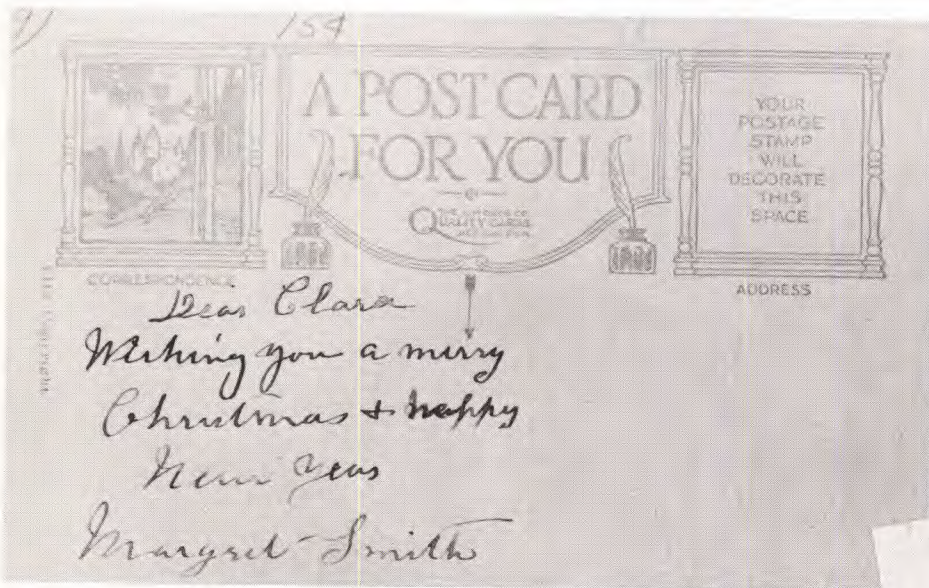 154
A POST CARD
FOR YOU
QUALITY CARDS
YOUR
POSTAGE
STAMP
WILL
DECORATE
THIS
SPACE
CORRESPONDENCE
ADDRESS
Dear Clara
Wishing you a merry
Christmas + happy
New Year
Margret Smith